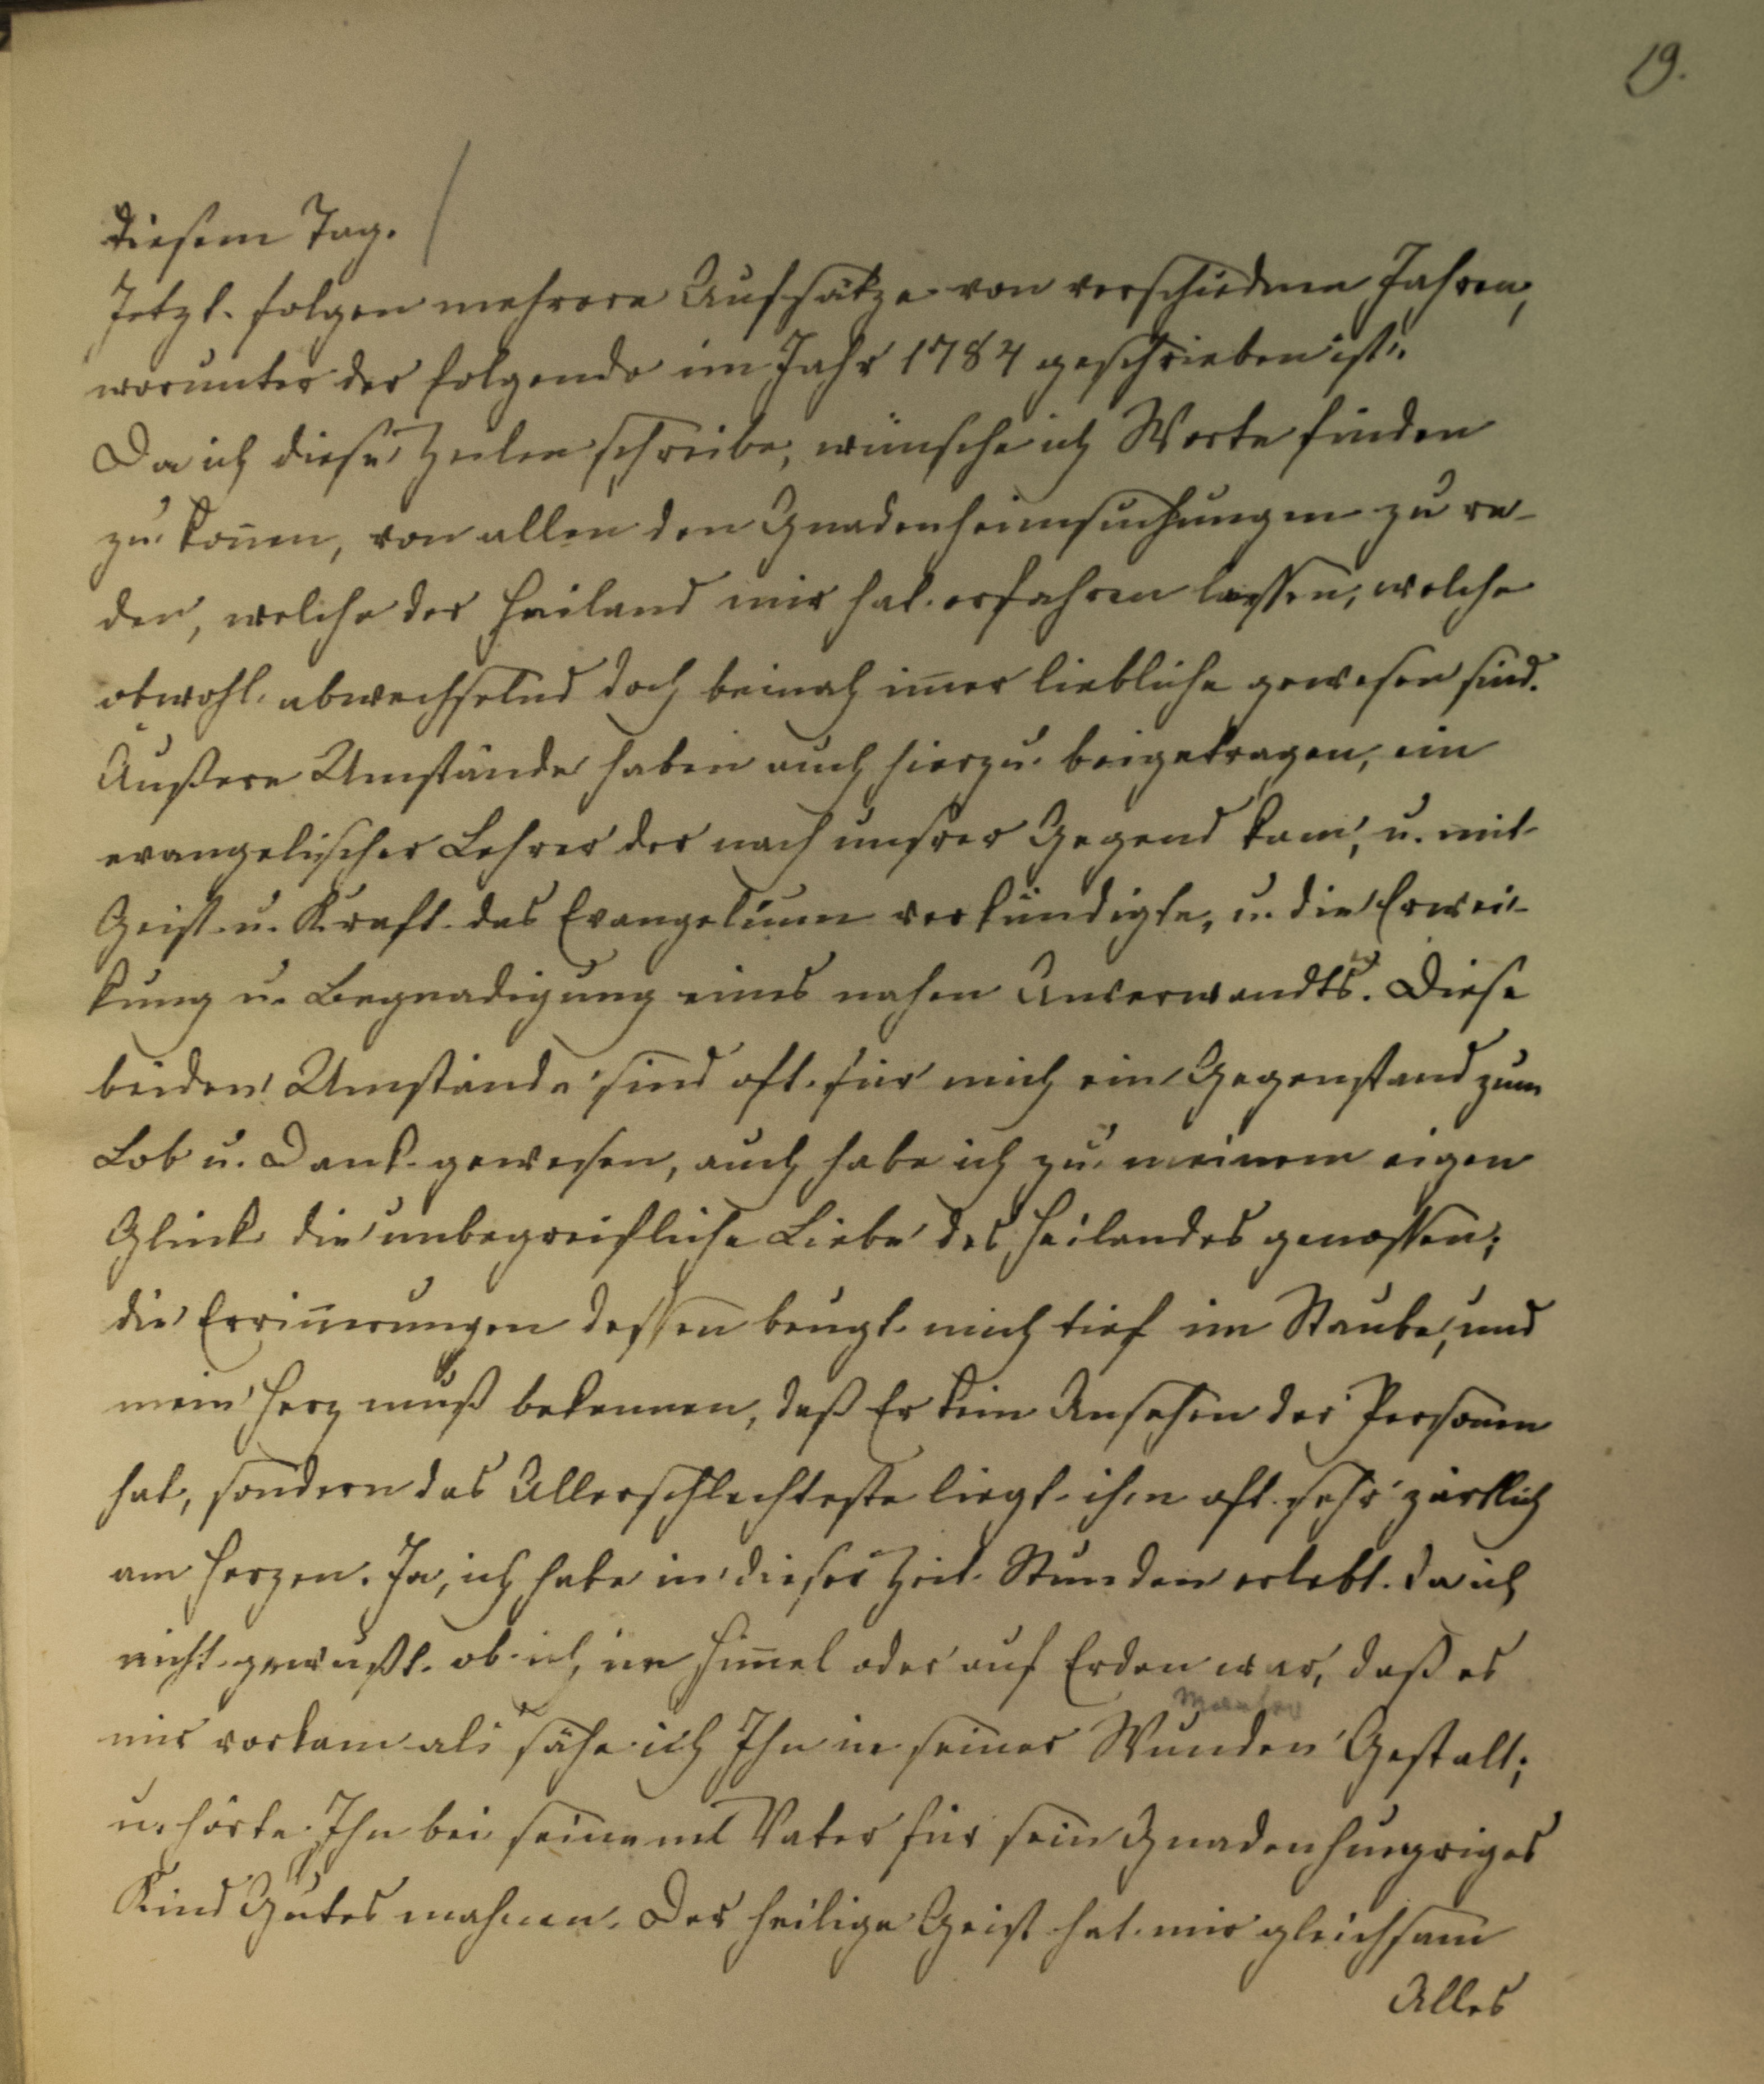 19.
diesem Tag.
Jetzt folgen mehrere Aufsätze von verschiednen Jahren,
worunter der folgende im Jahr 1784 geschrieben ist:
Da ich diese Zeilen schreibe, wünsche ich Worte finden
zu kön̄en, von allen den Gnadenheimsuchungen zu re-
den, welche der Heiland mir hat erfahren lassen, welche
obwohl abwechselnd doch beinah im̄er liebliche gewesen sind.
Äußere Umstände haben auch hierzu beigetragen, ein
evangelischer Lehrer der nach unsrer Gegend kam, u. mit
Geist u. Kraft das Evangelium verkündigte, u. die Erwei-
kung u. Begnadigung eines nahen Anverwandts. Diese
beiden Umstände sind oft für mich ein Gegenstand zum
Lob u. Dank gewesen, auch habe ich zu meinem eigen
Glück die unbegreifliche Liebe des Heilandes genossen;
die Errin̄erungen dessen beugt mich tief im Staube, und
mein Herz muß bekennen, daß Er kein Ansehen der Personen
hat, sondern das Allerschlechteste liegt ihm oft sehr zärtlich
am Herzen. Ja, ich habe in dieser Zeit Stunden erlebt da ich
nicht gewußt ob ich im Him̄el oder auf Erden war, daß es
mir vorkam als sähe ich Ihn in seiner Wunden Gestalt;
u. hörte Ihn bei seinem Vater für sein Gnadenhungriges
Kind Gutes mahnen. Der heilige Geist hat mir gleichsam
Alles